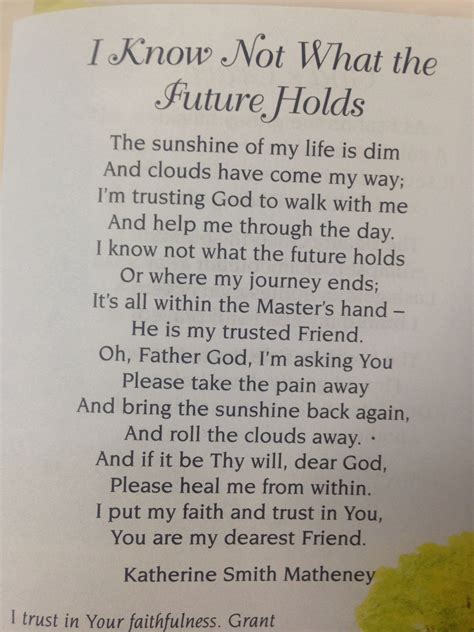 I Know Not What the
Future Holds
The sunshine of my life is dim
And clouds have come my way;
I'm trusting God to walk with me
And help me through the day.
I know not what the future holds
Or where my journey ends;
It's all within the Master's hand –
He is my trusted Friend.
Oh, Father God, I'm asking You
Please take the pain away
And bring the sunshine back again,
And roll the clouds away.
And if it be Thy will, dear God,
Please heal me from within.
I put my faith and trust in You,
You are my dearest Friend.
Katherine Smith Matheney
I trust in Your faithfulness. Grant